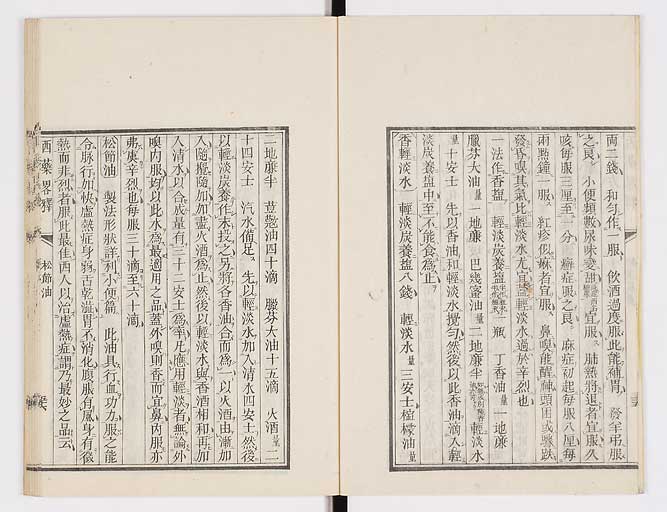 両二錢　和勻作一服　飲酒過度服此能補胃　發羊弔服
之良　小便頻數尿味變甜　宜服　肺熱將退者宜服久
咳每服三厘至一分　癬症服之良　麻症初起每服八厘每
兩點鐘一服　紅疹似麻者宜服　鼻嗅能醒神頭困或驟跌
發昏嗅其氣比輕淡水尤宜輕淡水過於辛烈也
一法作香鹽　輕淡炭養鹽一瓶　丁香油量一地廉
臘芬大油量一地廉　巴幾密油量二地廉半　輕淡水
量十安士　先以香油和輕淡水攪勻然後以此香油滴入輕
淡炭養鹽中至不能食為止
香輕淡水　輕淡炭養鹽八錢　輕淡水量三安士檸檬油量
二地廉半　荳蔲油四十滴　臘芬大油十五滴　火酒量二
十四安士　汽水備足　先以輕淡水加入清水四安士然後
以輕淡炭養作末投之另將各香油合而為一以火酒由漸加
入隨攪隨加加盡火酒為止然後以輕淡水與香酒相和再加
入清水以合成量有三十二安士為率凡應用輕淡者無論外
嗅內服均以此水為最適用之品蓋外嗅則香而宜鼻內服亦
弗爽辛烈也每服三十滴至六十滴
松節油　製法形狀詳列小便篇　此油其行血功力服之能
令脉行加快虛熱症身弱舌乾滋胃不消化腹脹有風身有微
熱而非烈者服此最佳西人以治虛熱症謂乃最妙之品云
西藥畧釋
松節油